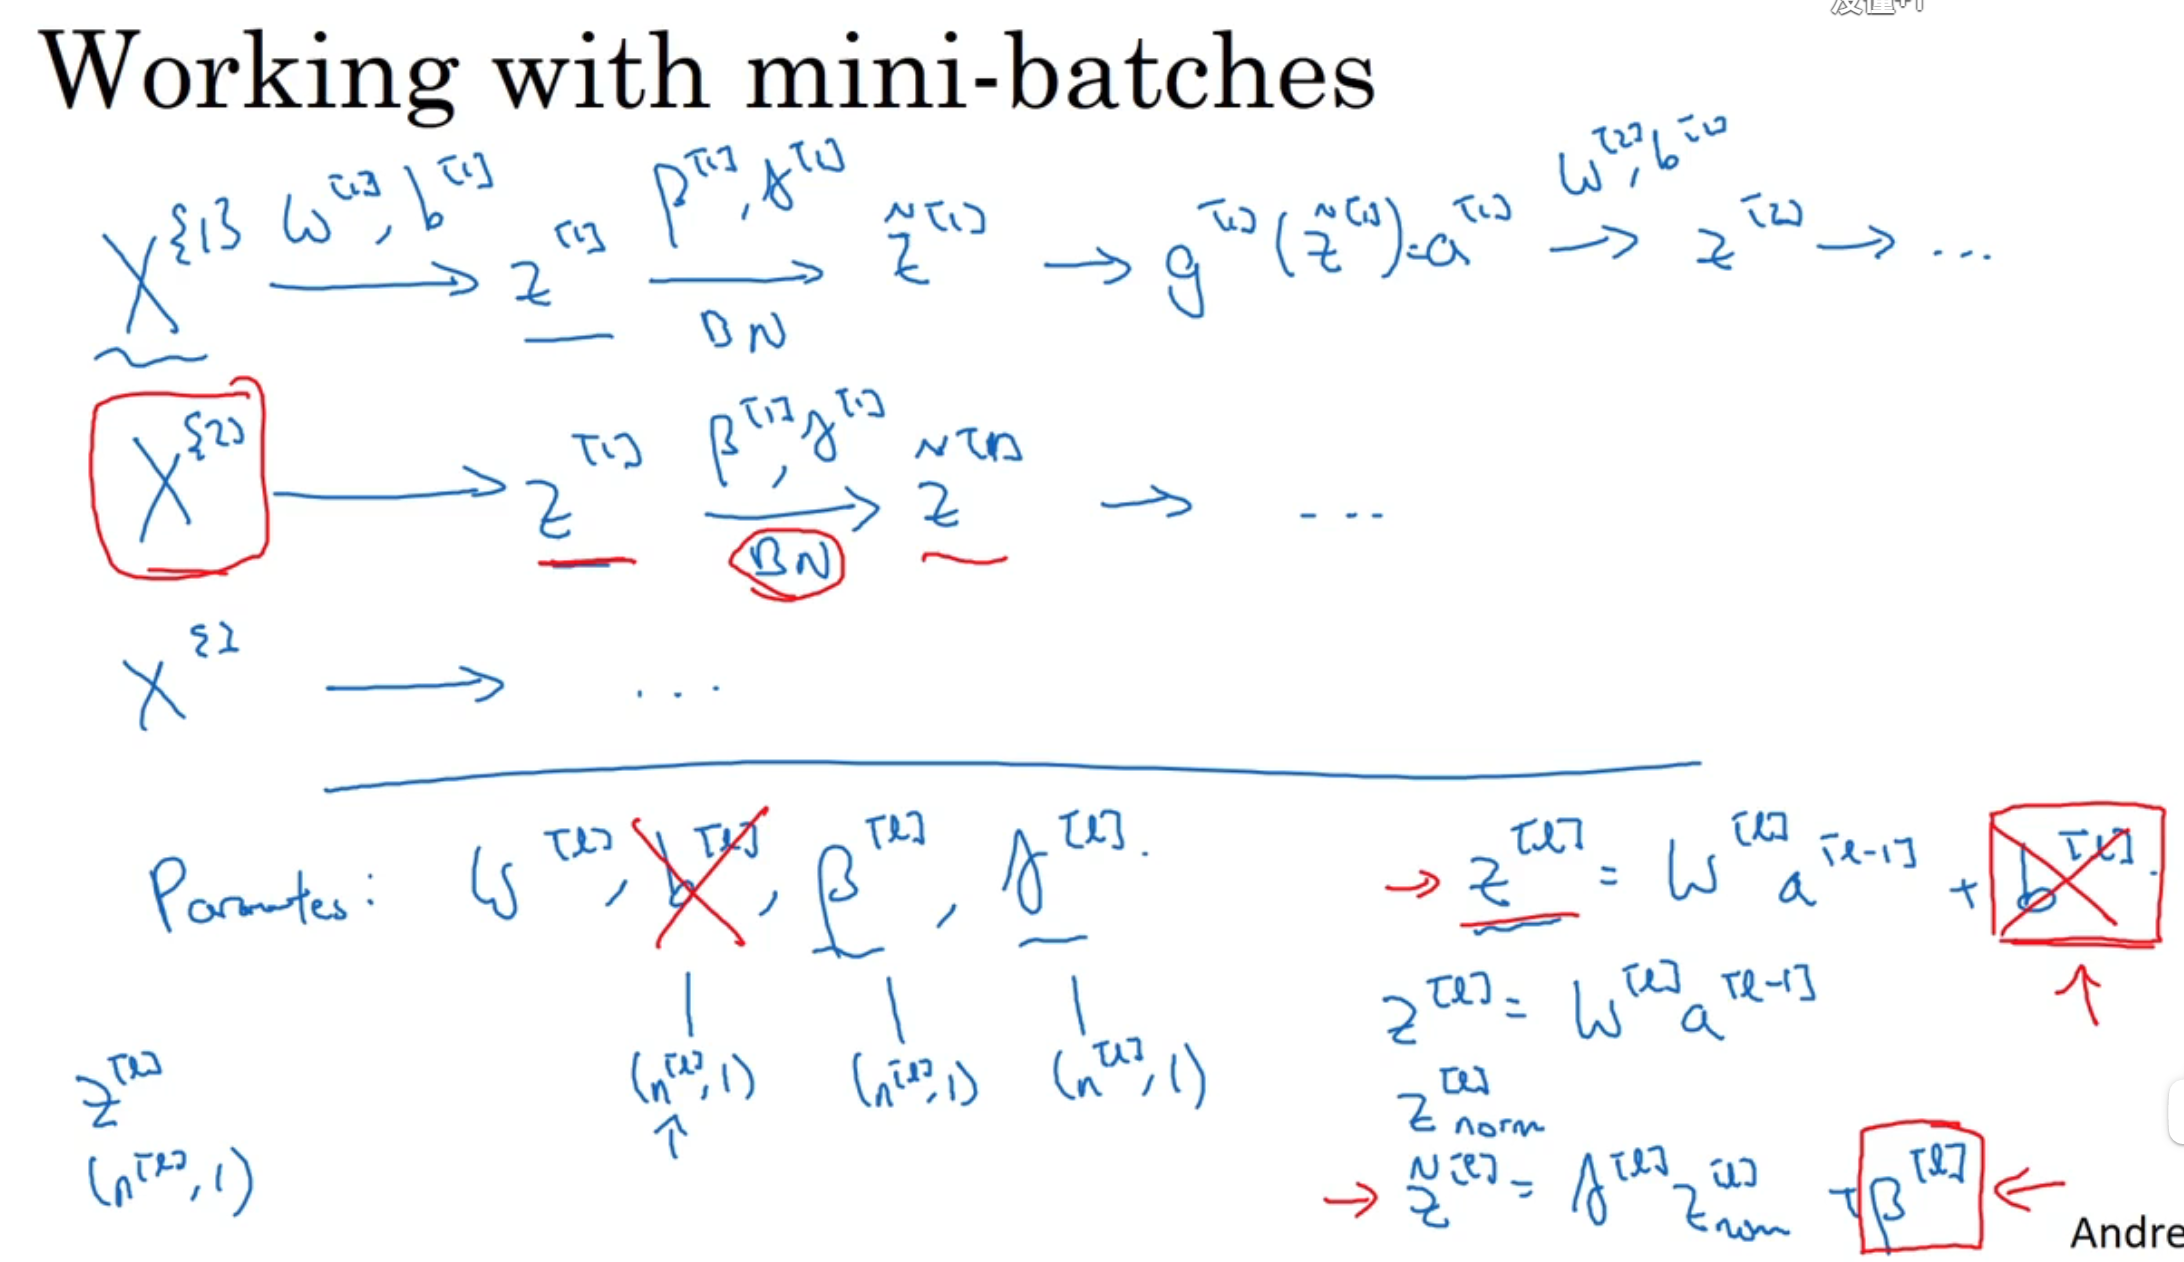 没懂+1
Working with mini-batches
X^{1} W^[1], b^[1] → z^[1] β^[1], γ^[1] → BN z̃^[1] → g^[1](z̃^[1]) = a^[1] W^[2], b^[2] → z^[2] → ...
X^{2} → z^[1] β^[1], γ^[1] → BN z̃^[1] → ...
X^{} → ...
Parameters: W^[l], b^[l], β^[l], γ^[l].
(n^[l], 1) (n^[l], 1) (n^[l], 1)
↑
z^[l]
(n^[l], 1)
→ z^[l] = W^[l] a^[l-1] + b^[l].
↑
z^[l] = W^[l] a^[l-1]
z^[l] norm
→ z̃^[l] = γ^[l] z^[l] norm + β^[l] ←
Andre